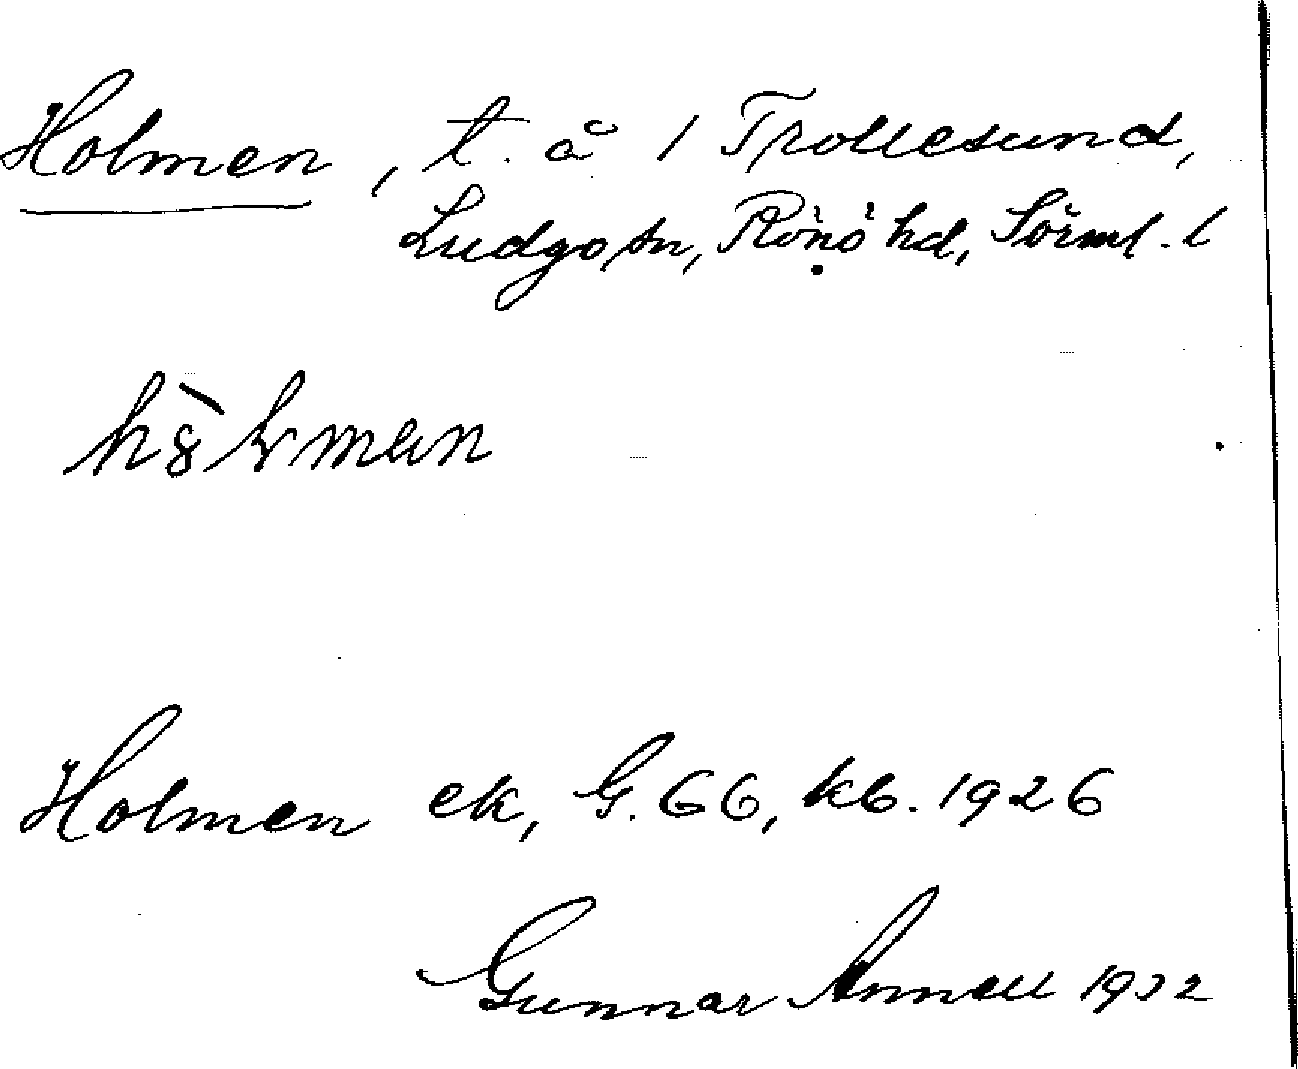 Holmen, t. å 1 Trollesund,
Ludgo sn, Rönö hd, Sörml. l
Holmen ek, G. 66, kb. 1926
Gunnar Annell 1932